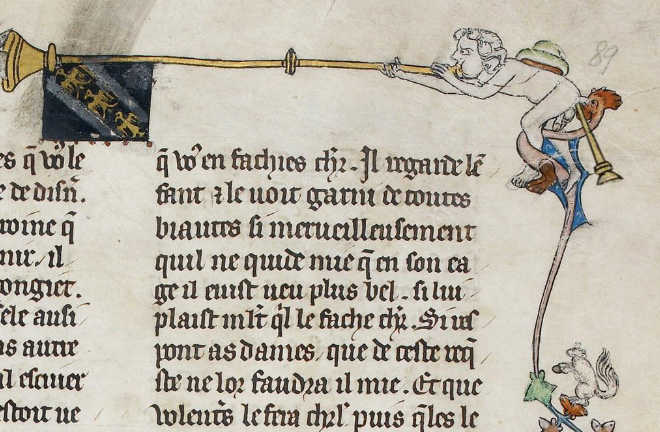 89
es q̄ vo᷒ le
e de disn̄.
moine q̄
nir. il
ongier.
sele ausi
as autre
al escuier
estoit ue
q̄ vo᷒ en fachies chr̄. Il regarde lē
fant ⁊ le uoit garni de toutes
biautes si merueilleusement
quil ne quide mie q̄ en son ea
ge il euist ueu plus bel. si lui
plaist ml̄t q̄l le fache chr̄. Si
ront as dames, que de ceste req̄
ste ne lor faudra il mie. Et que
volent's le fera chr̄l' puis q̄les le